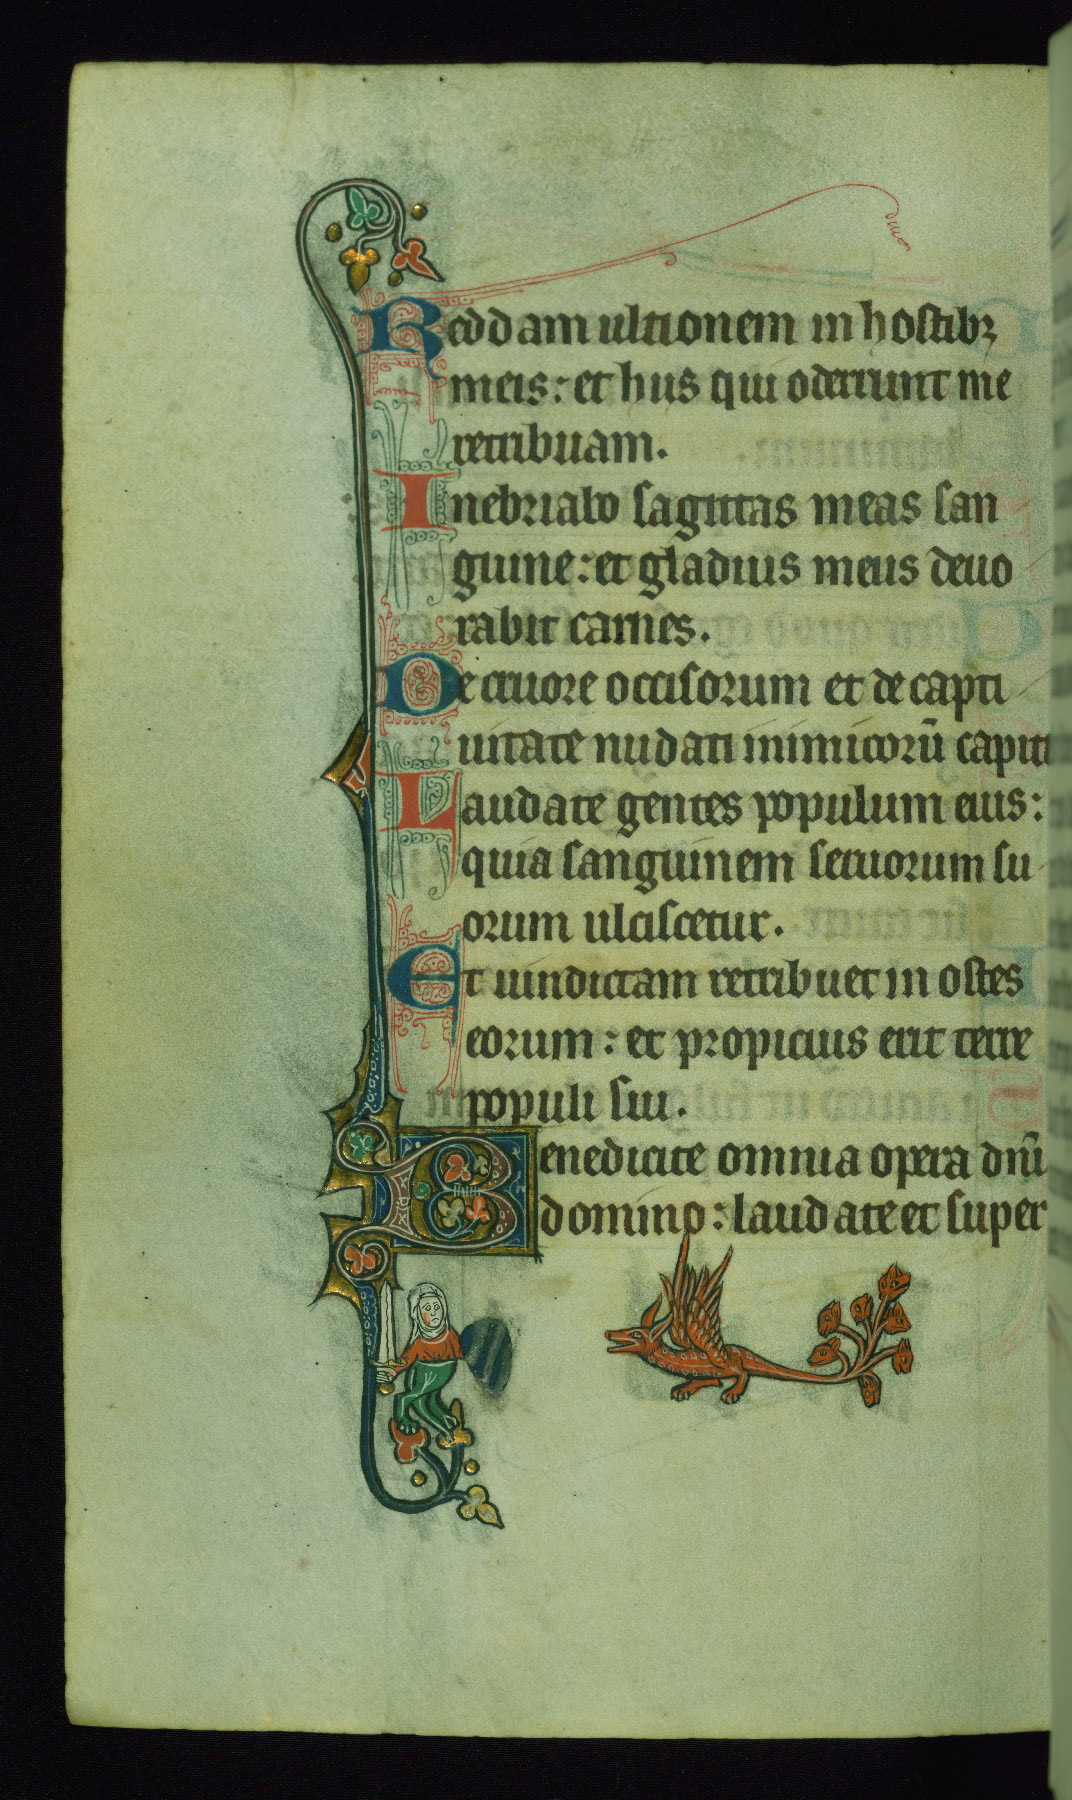 Reddam ultionem in hostibꝫ
meis: et hiis qui oderunt me
retribuam.
Inebriabo sagittas meas san
guine: et gladius meus deuo
rabit carnes.
De cruore occisorum et de capti
uitate nudati inimicorū capit
Laudate gentes populum eius:
quia sanguinem seruorum su
orum ulciscetur.
Et uindictam retribuet in ostes
eorum: et propicius erit terre
populi sui.
Benedicite omnia opera dn̄i
domino: laudate et super